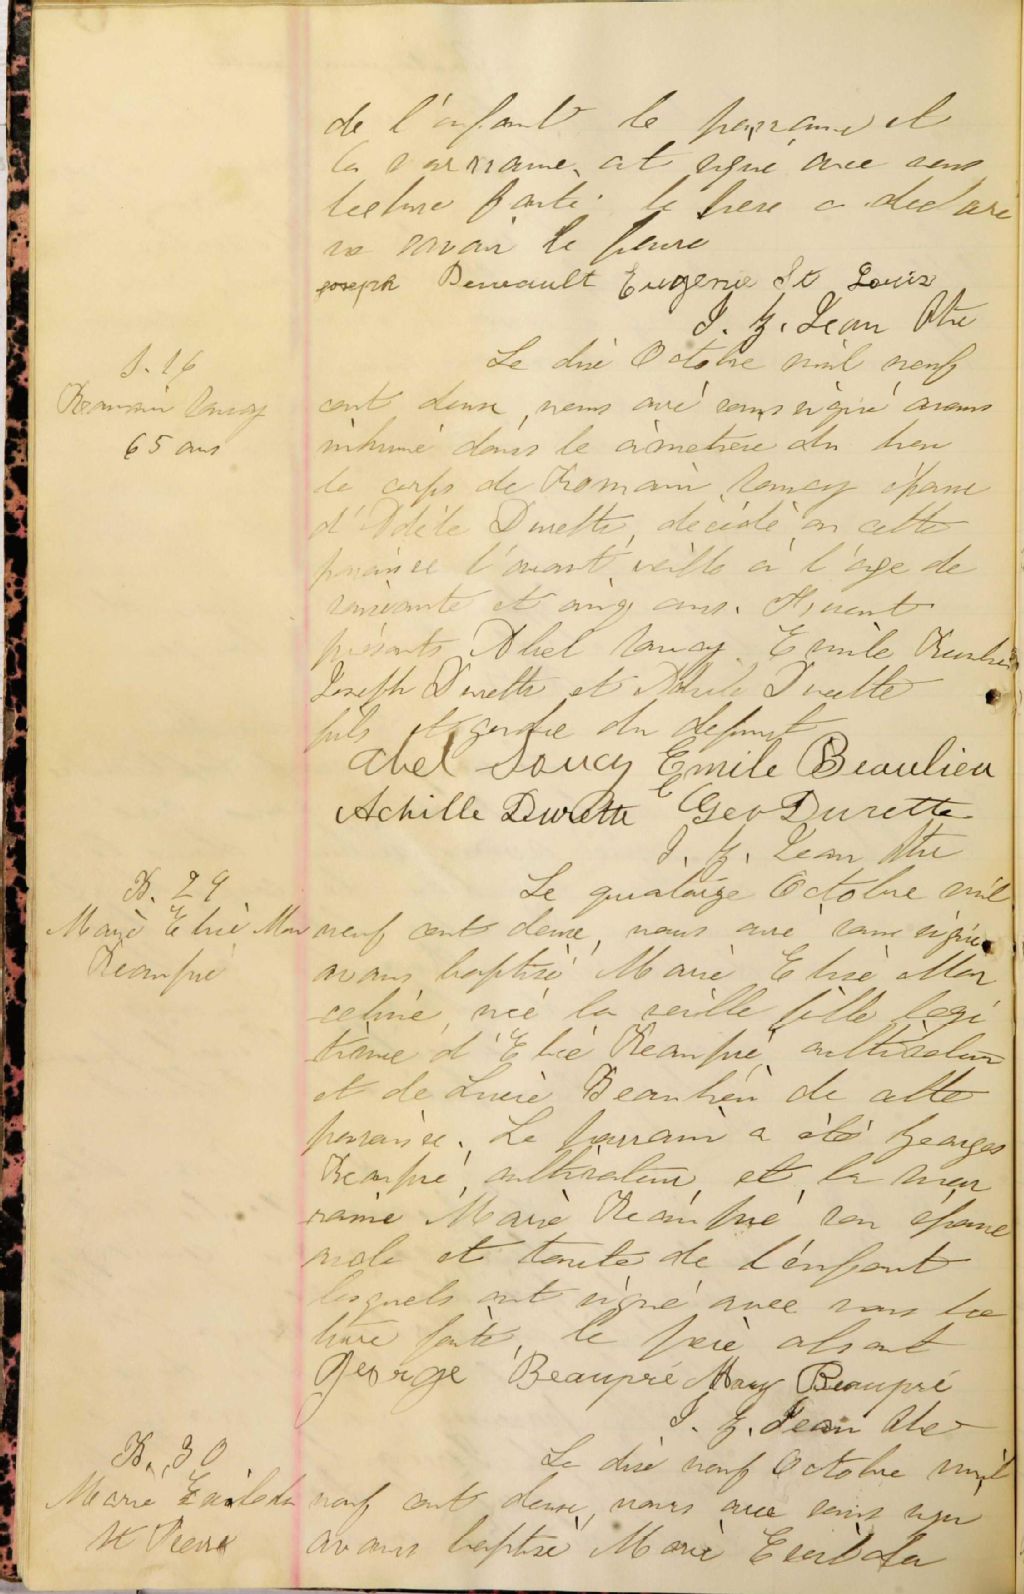 de l'enfant le parrain et
la marraine ont signé avec nous
lecture faite. le père a déclaré
ne savoir le faire
Joseph Perreault Eugenie St Louis
J. G. Jean Ptre
S. 16
Romain Soucy
65 ans
Le dix Octobre mil neuf
cent douze, nous curé soussigné avons
inhumé dans le cimetière du lieu
le corps de Romain Soucy époux
d'Adèle Durette, décédé en cette
paroisse l'avant veille à l'age de
soixante et cinq ans. Furent
présents Abel Soucy Emile Beaulieu
Joseph Durette et Achile Durette
fils et gendre du defunt
Abel Soucy Emile Beaulieu
Achille Durette Geo Durette
J. G. Jean Ptre
B. 29
Marie Elise Mar
Beaupré
Le quatorze Octobre mil
neuf cent douze, nous curé soussigné
avons baptisé Marie Elise Mar
celine, née la veille fille legi
time d'Elie Beaupré, cultivateur
et de Lucie Beaulieu de cette
paroisse. Le parrain a été Georges
Beaupré, cultivateur, et la mar
raine Marie Beaupré, son épouse
oncle et tante de l'enfant
lesquels ont signé avec nous lec
ture faite, le père absent
George Beaupré Mary Beaupré
J. G. Jean Ptre
B. 30
Marie Exilda
St Pierre
Le dix neuf Octobre mil
neuf cent douze, nous curé sous signé
avons baptisé Marie Exilda